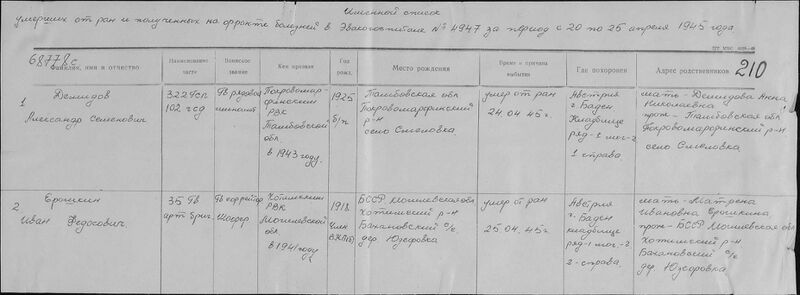 Именной список
умерших от ран и полученных на фронте болезней в Эвакогоспитале № 4947 за период с 20 по 25 апреля 1945 года
68778с
210
Фамилия, имя и отчество
Наименование части
Воинское звание
Кем призван
Год рожд.
Место рождения
Время и причина выбытия
Где похоронен
Адрес родственников
1
Демидов
Александр Семенович
322 Гсп
102 гсд
Гв рядовой
Покровомар-
финским
РВК
Тамбовской
обл.
в 1943 году.
1925
б/п
Тамбовская обл
Покровомарфинский
р-н
село Смеловка
умер от ран
24.04.45 г.
Австрия
г. Баден
Кладбище
ряд-1 мог-2
1 справа.
мать - Демидова Анна
Николаевна
прож - Тамбовская обл
Покровомарфинский р-н
село Смеловка
2
Ерошкин
Иван Федосович.
35 Гв
арт бриг.
Гв ефрейтор
Шофер
Хотимским
РВК
Могилевской
обл
в 1941 году
1918
член
ВКП(б)
БССР Могилевская обл
Хотимский р-н
Бахановский с/с
дер. Юзефовка
умер от ран
25.04.45 г.
Австрия
г. Баден
кладбище
ряд-1 мог-2
2-справа.
мать - Матрена
Ивановна Ерошкина
прож - БССР Могилевская обл
Хотимский р-н
Бахановский с/с
дер. Юзефовка